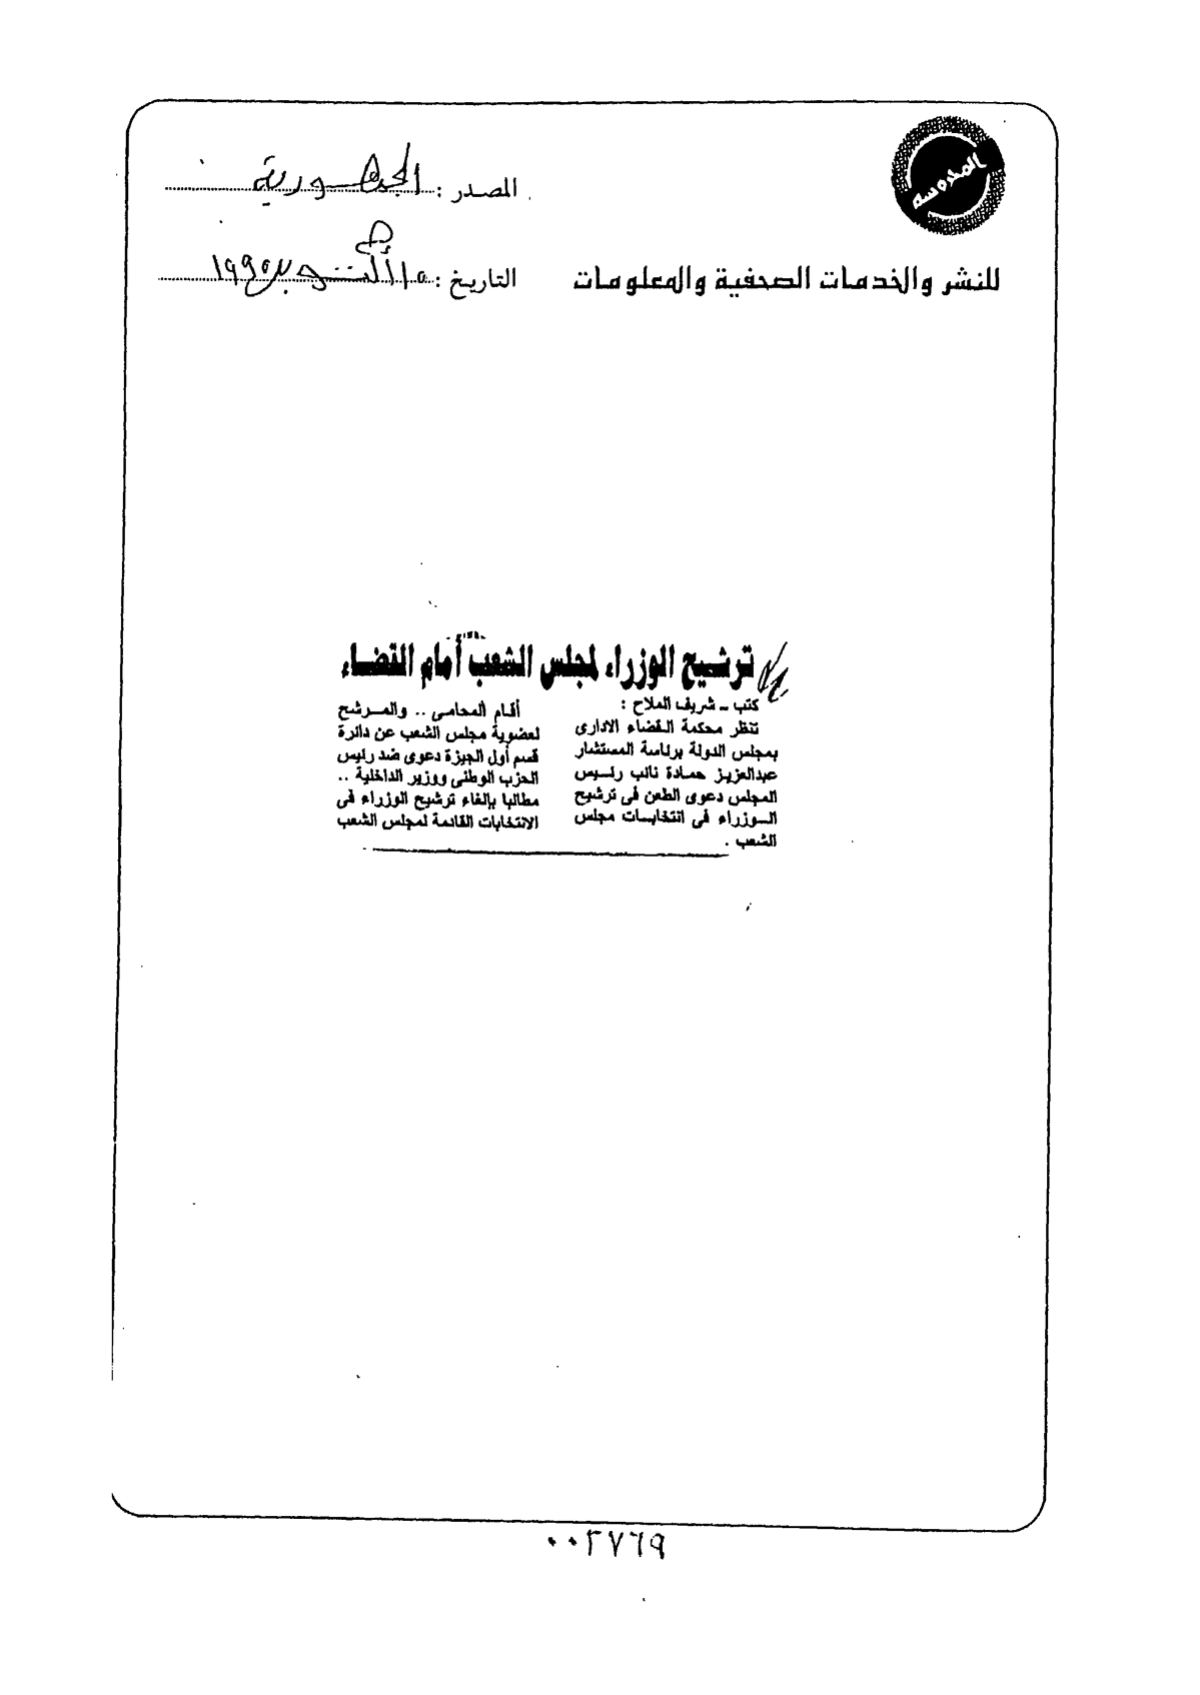 المحروسة
المصدر : الجمهورية
للنشر والخدمات الصحفية والمعلومات
التاريخ : ١٥ أكتوبر ١٩٩٥
ترشيح الوزراء لمجلس الشعب أمام القضاء
كتب ــ شريف الملاح :
تنظر محكمة القضاء الادارى
بمجلس الدولة برئاسة المستشار
عبدالعزيز حمادة نائب رئيس
المجلس دعوى الطعن فى ترشيح
الوزراء فى انتخابات مجلس
الشعب .
أقام المحامى .. والمرشح
لعضوية مجلس الشعب عن دائرة
قسم أول الجيزة دعوى ضد رئيس
الحزب الوطنى ووزير الداخلية ..
مطالبا بإلغاء ترشيح الوزراء فى
الانتخابات القادمة لمجلس الشعب
٠٠٢٧٦٩